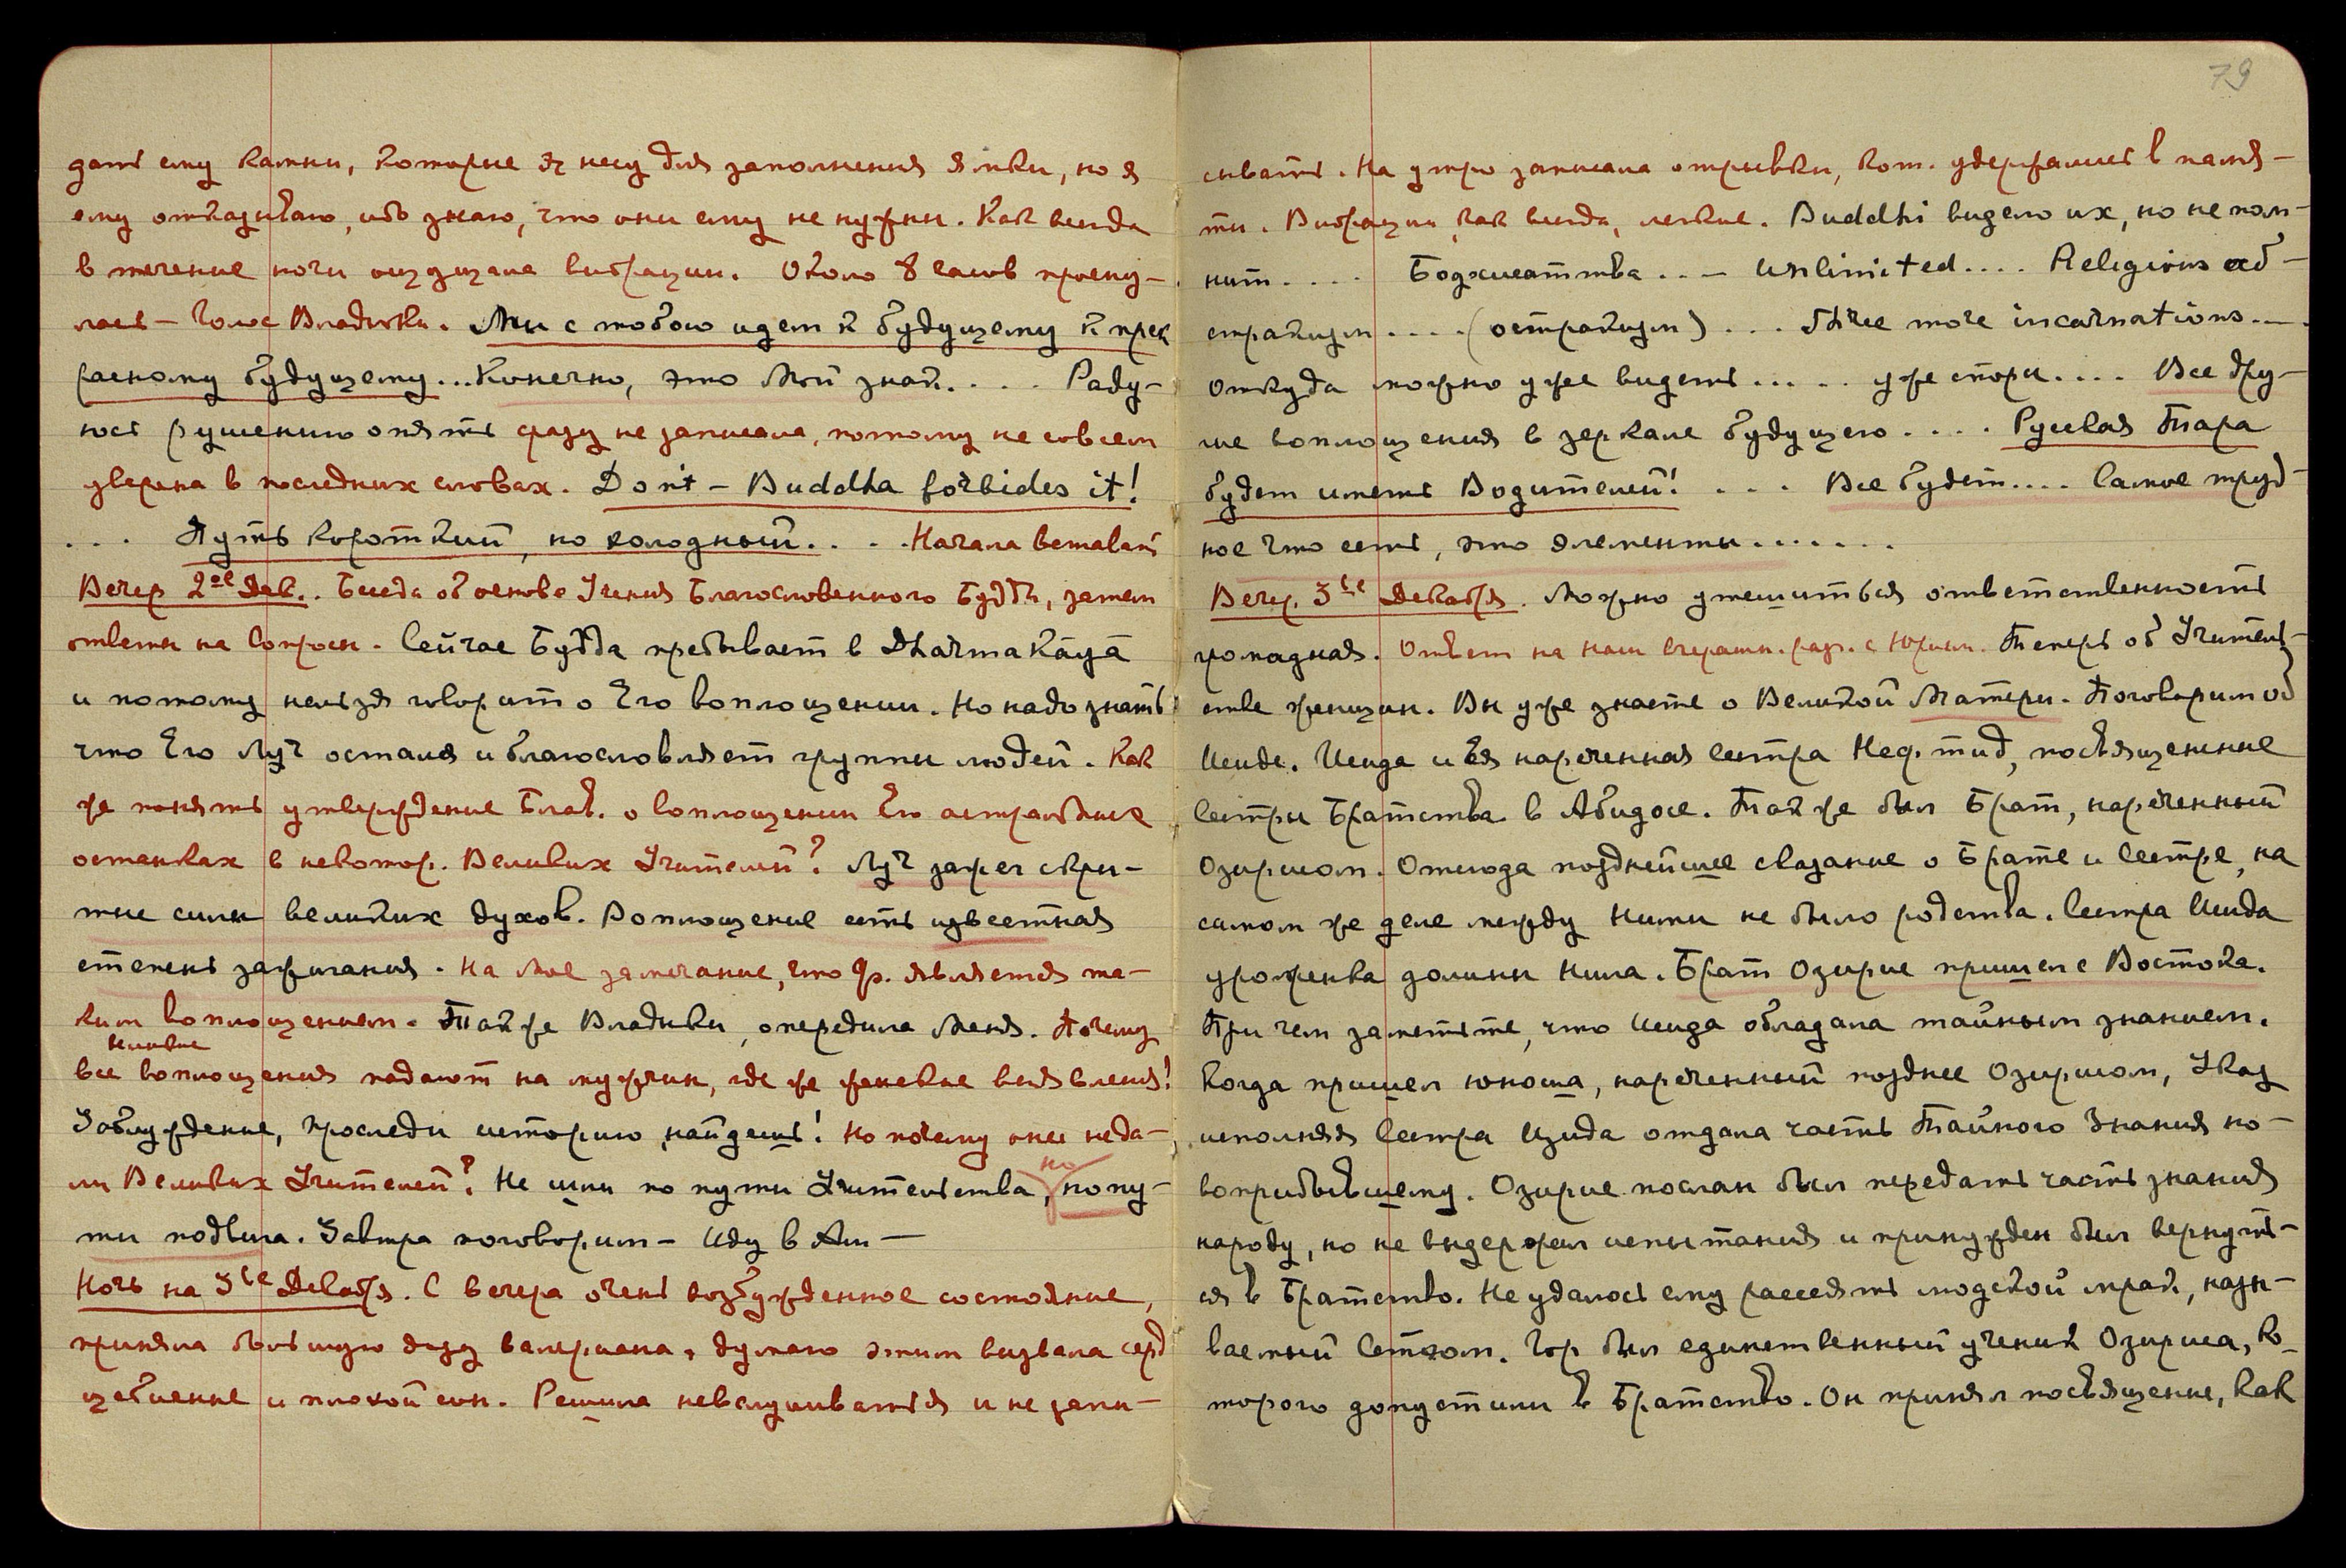 дать ему камни, которые я несу для заполнения ямки, но я
ему отказываю, ибо знаю, что они ему не нужны. Как всегда
в течение ночи ощущала вибрации. Около 8 часов просну-
лась – Голос Владыки. Мы с тобою идем к будущему к прек
расному будущему...Конечно, это Мой знак.... Раду-
юсь решению опять сразу не записала, потому не совсем
уверена в последних словах. Dont – Buddha forbides it!
... Путь короткий, но холодный.... Начала вставать
Вечер 2ое Дек.. Беседа об основе Учения Благословенного Будды, затем
ответы на вопросы. Сейчас Будда пребывает в Dharmakāyā
и потому нельзя говорить о Его воплощении. Но надо знать
что Его Луч остался и благословляет группы людей. Как
же понять утверждение Блав. о воплощении Его астральных
останках в некотор. Великих Учителей? Луч зажег скры-
тые силы великих духов. Воплощение есть известная
степень зажигания. На мое замечание, что Ф. является та-
ким воплощением. Так же Владыки, опередила Меня. Почему
великие
все воплощения падают на мужчин, где же женские воплощения!
Заблуждение, проследи историю, найдешь! Но почему они не да-
ли Великих Учителей? Не шли по пути Учительства, но
по пу-
ти подвига. Завтра поговорим – Иду в Аш –
Ночь на 3ье Декабря. С вечера очень возбужденное состояние,
приняла большую дозу валериана, думаю этим вызвала серд
цебиение и плохой сон. Решила не вслушиваться и не запи-
79
сывать. На утро записала отрывки, кот. удержались в памя-
ти. Вибрации, как всегда, легкие. Buddhi видело их, но не пом-
нит.... Бодхисаттва... – Unlimited.... Religious
остракизм....(остракизм)... Three more incarnations....
Откуда можно уже видеть..... уже споры.... Все дру-
гие воплощения в зеркале будущего.... Русская Тара
будет иметь Водителей!... Все будет.... Самое труд-
ное что есть, это элементы.......
Вечер. 3ье Декабря. Можно утешиться ответственность
громадная. Ответ на наш вчерашн. раз. с Юрием. Теперь об Учитель-
стве женщин. Вы уже знаете о Великой Матери. Поговорим об
Исиде. Исида и Ея нареченная сестра Нефтид, посвященные
Сестры Братства в Абидосе. Так же был Брат, нареченный
Озирисом. Отсюда позднейшее сказание о Брате и Сестре, на
самом же деле между Ними не было родства. Сестра Исида
уроженка долины Нила. Брат Озирис пришел с Востока.
При чем заметьте, что Исида обладала тайным знанием.
Когда пришел юноша, нареченный позднее Озирисом, Указ
исполняя Сестра Изида отдала часть Тайного Знания но-
воприбывшему. Озирис послан был передать часть знания
народу, но не выдержал испытания и принужден был вернуть-
ся в Братство. Не удалось ему рассеять людской мрак, назы-
ваемый Сетхом. Гор был единственный ученик Озириса, ко-
торого допустили в Братство. Он принял посвящение, как